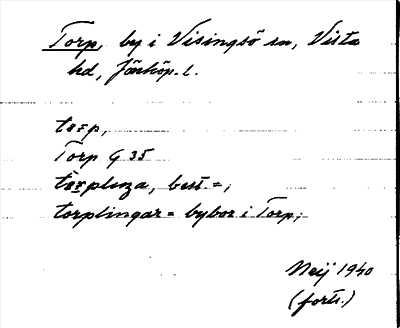 Torp, by i Visingsö sn, Vista
hd, Jönköp. l.
torp,
Torp G 35
torpluza, best. =,
torplingar = bybor i Torp;
Neij 1940
(forts.)